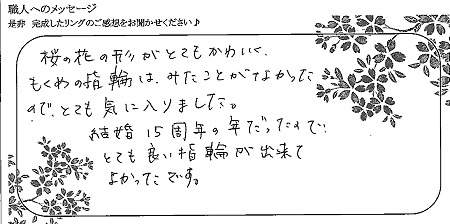 職人へのメッセージ
是非 完成したリングのご感想をお聞かせください♪
桜の花の形がとてもかわいく、
もくめの指輪は、みたことがなかった
ので、とても気に入りました。
結婚15周年の年だったので、
とても良い指輪が出来て
よかったです。